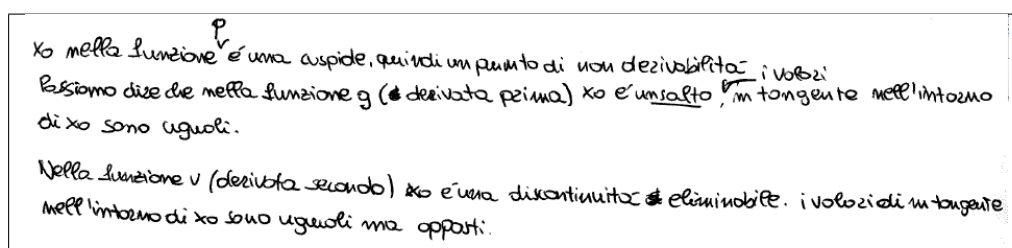 xo nella funzione p é una cuspide, quindi un punto di non derivabilità
Possiamo dire che nella funzione g (derivata prima) xo é un salto, i valori m tangente nell'intorno
di xo sono uguali.
Nella funzione v (derivata seconda) xo é una discontinuità eliminabile. i valori di m tangente
nell'intorno di xo sono uguali ma opposti.